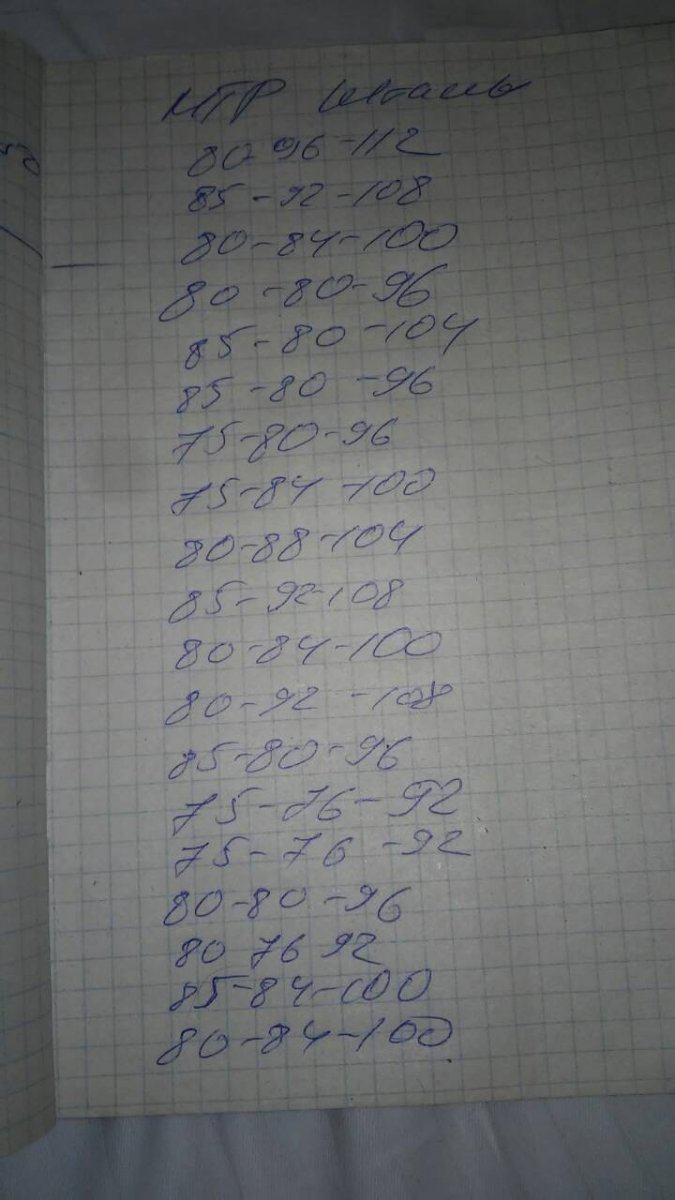 50
МТР штаны
80-96-112
85-92-108
80-84-100
80-80-96
85-80-104
85-80-96
75-80-96
75-84-100
80-88-104
85-92-108
80-84-100
80-92-108
85-80-96
75-76-92
75-76-92
80-80-96
80 76 92
85-84-100
80-84-100